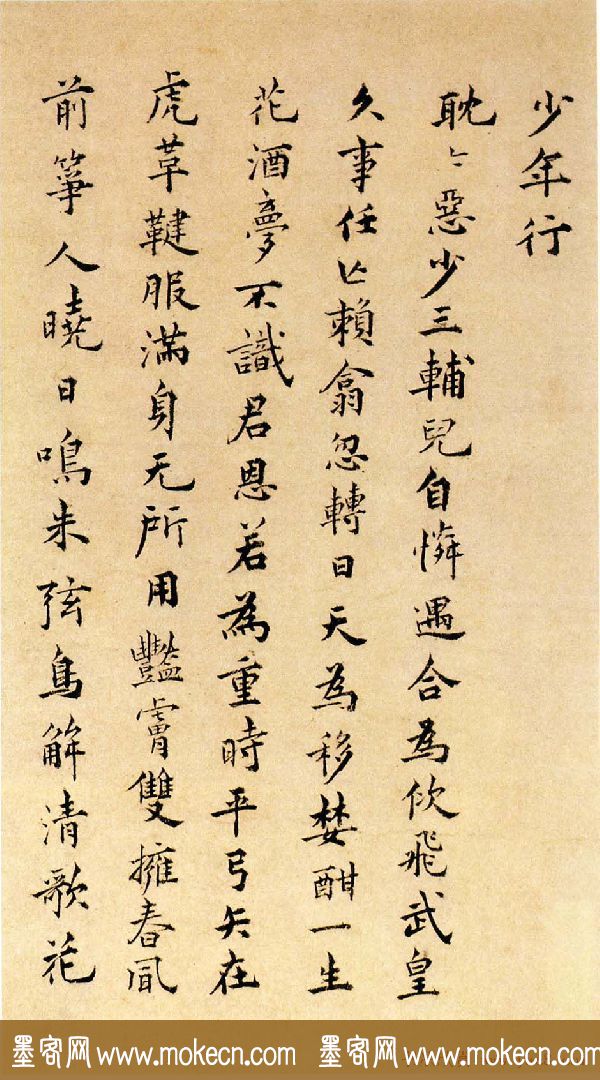 少年行
耽〻惡少三輔兒自憐遇合為佽飛武皇
久事任亾賴翕忽轉日天為移婪酣一生
花酒夢不識君恩若為重時平弓矢在
虎革鞬服滿身无所用豔膚雙擁春風
前箏人曉日鳴朱弦鳥解清歌花
墨客网 www.mokecn.com 墨客网 www.mokecn.com